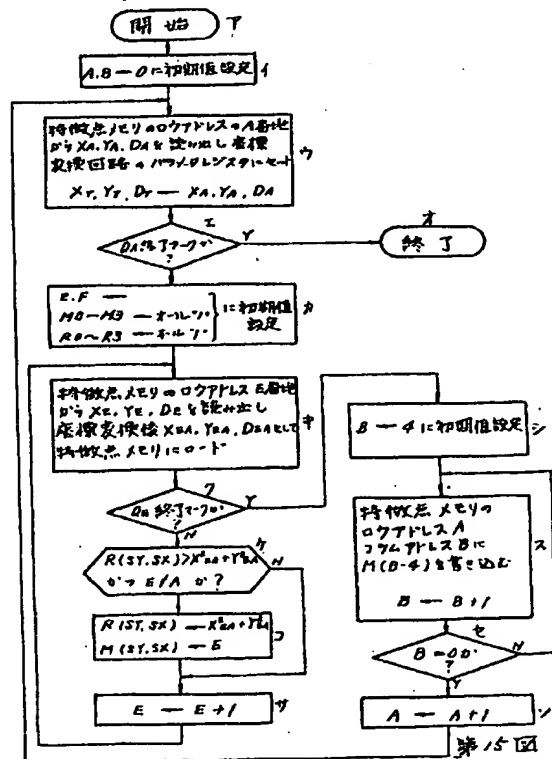 開始 ア
A.B ← 0に初期値設定 イ
特徴点メモリのロウアドレスのA番地
からXA,YA,DAを読み出し座標
変換回路のパラメータレジスタにセット ウ
XT,YT,DT ← XA,YA,DA
エ
DA終了マークか
?
Y
オ
終了
E.F ←
M0~M3 ← オール"0"
R0~R3 ← オール"1"
に初期値
設定
カ
特徴点メモリのロウアドレスE番地
からXE,YE,DEを読み出し
座標変換後XEA,YEA,DEAとして キ
特徴点メモリにロード
ク
DE終了マークか
?
Y
N
ケ
R(SY,SX)>X²EA+Y²EA
かつE≠Aか?
N
R(SY,SX) ← X²EA+Y²EA
M(SY,SX) ← E
コ
E ← E+1 サ
B ← 4に初期値設定 シ
特徴点メモリの
ロウアドレスA
コラムアドレスBに
M(B-4)を書き込む
ス
B ← B+1
セ
B=0か
?
N
Y
A ← A+1 ソ
第15図